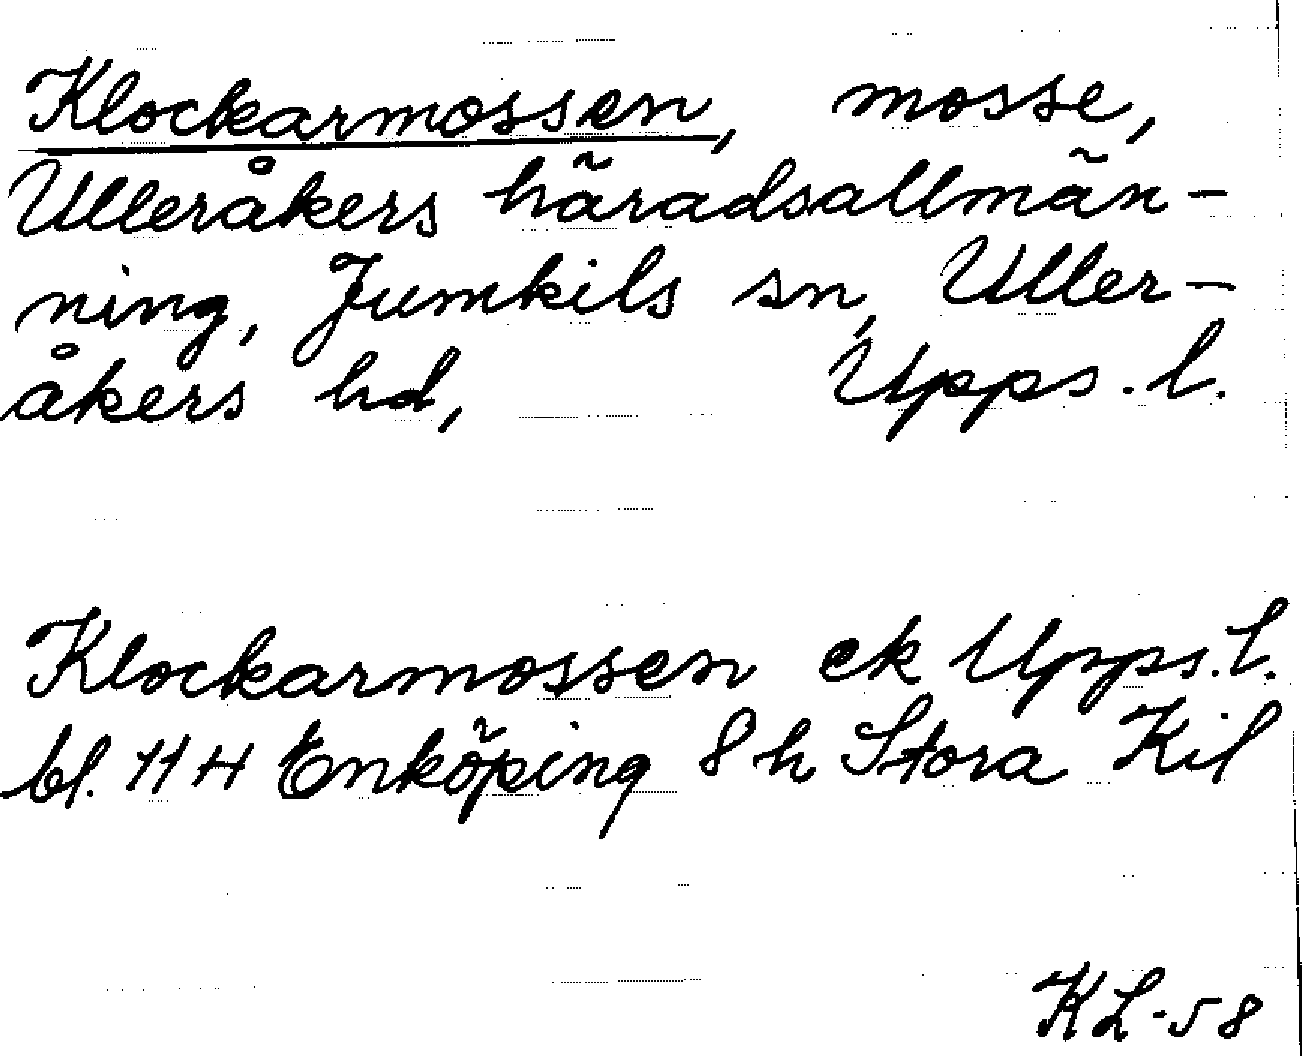 Klockarmossen, mosse,
Ulleråkers häradsallmän-
ning, Jumkils sn, Uller-
åkers hd, Upps. l.
Klockarmossen ek Upps. l.
bl. 11 H Enköping 8 h Stora Kil
KL-58